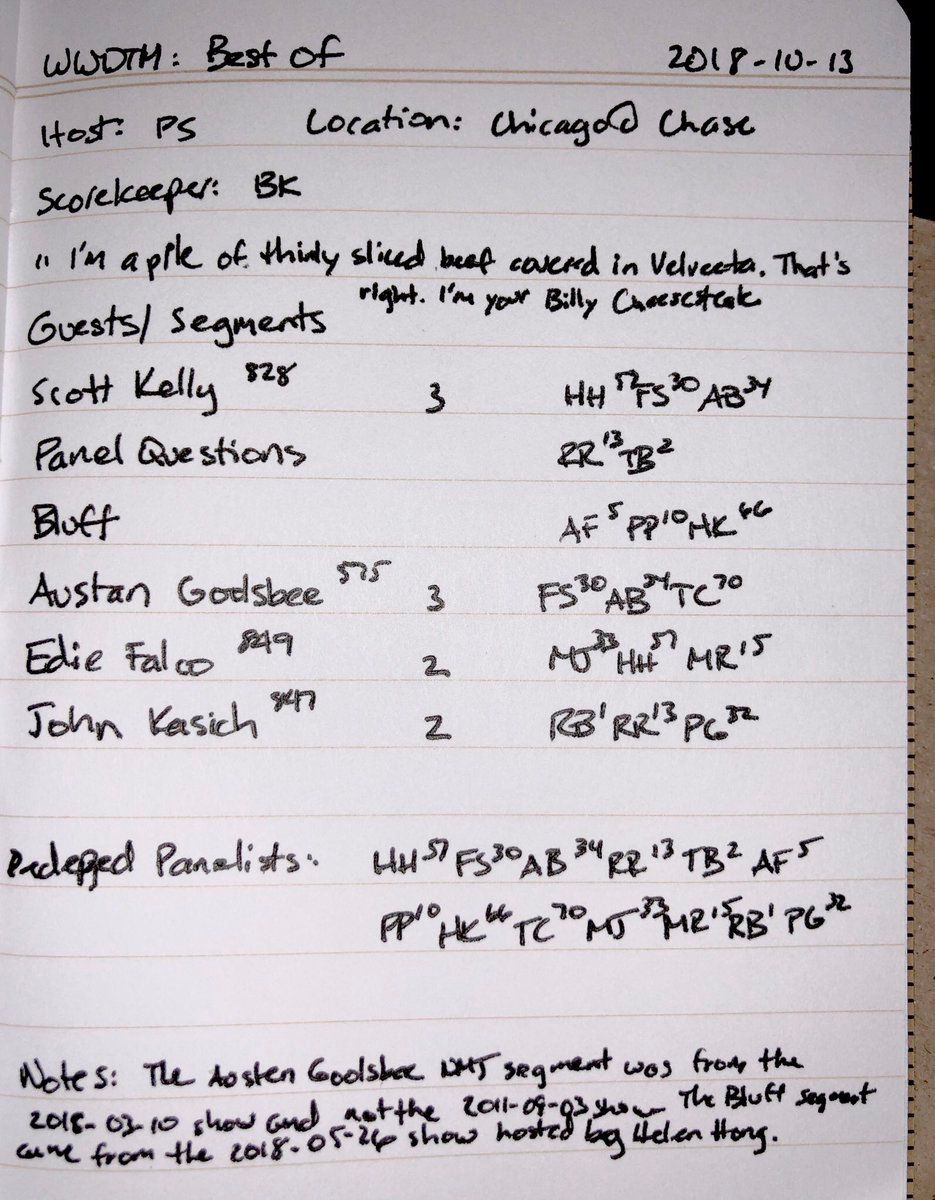 WWDTM: Best Of 2018-10-13
Host: PS Location: Chicago@ Chase
Scorekeeper: BK
" I'm a pile of thinly sliced beef covered in Velveeta. That's
right. I'm your Billy Cheesesteak
Guests/ Segments
Scott Kelly 828 3 HH 57 FS 30 AB 34
Panel Questions RR 13 TB 2
Bluff AF 5 PP 10 HK 66
Austan Godsbee 575 3 FS 30 AB 34 TC 70
Edie Falco 849 2 MJ 33 HH 57 MR 15
John Kasich 847 2 RB 1 RR 13 PG 32
Panelists: HH 57 FS 30 AB 34 RR 13 TB 2 AF 5
PP 10 HK 66 TC 70 MJ 33 MR 15 RB 1 PG 32
Notes: The Austen Goolsbee NMJ segment was from the
2018-03-10 show and not the 2011-09-03 show The Bluff segment
came from the 2018-05-26 show hosted by Helen Hong.